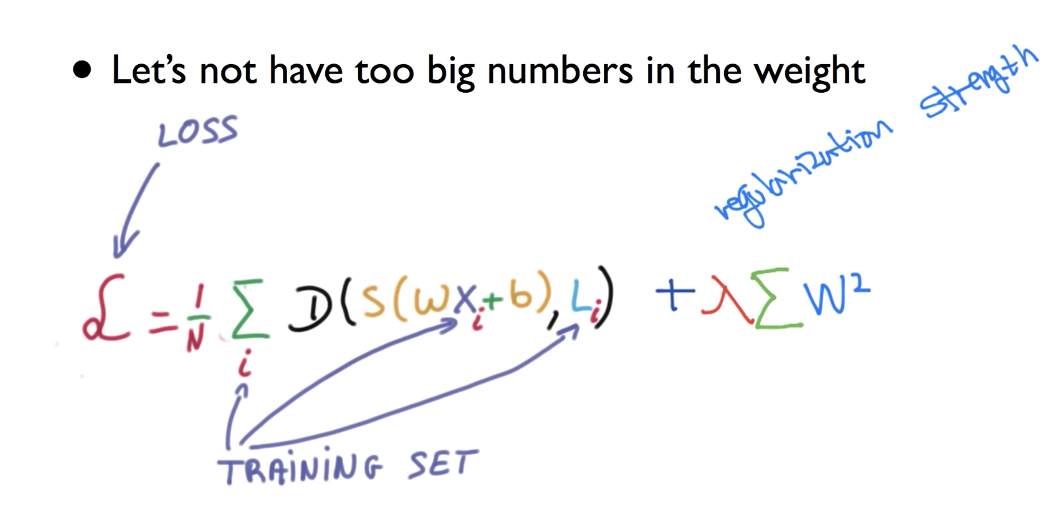 • Let's not have too big numbers in the weight
LOSS
regularization strength
ℒ = 1/N Σ_i D(S(WX_i+b), L_i) + λΣW²
TRAINING SET